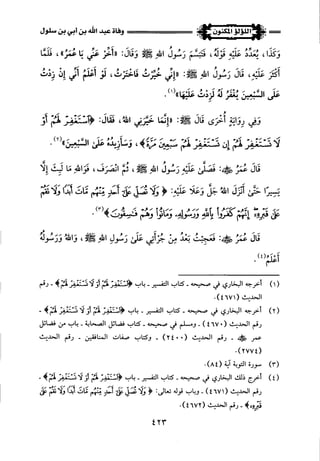 وفاة عبد الله بن أبي بن سلول
اللؤلؤ المكنون
وكذا، يُعدد عليه قوله، فتبسم رسول الله ﷺ وقال: «أَخِّرْ عَنِّي يَا عُمَرُ»، فلما
أكثر عليه، قال رسول الله ﷺ: «إِنِّي خُيِّرْتُ فَاخْتَرْتُ، لَوْ أَعْلَمُ أَنِّي إِنْ زِدْتُ
عَلَى السَّبْعِينَ يُغْفَرُ لَهُ لَزِدْتُ عَلَيْهَا»(١).
وفي رواية أخرى قال ﷺ: «إِنَّمَا خَيَّرَنِي اللهُ، فَقَالَ: ﴿اسْتَغْفِرْ لَهُمْ أَوْ
لَا تَسْتَغْفِرْ لَهُمْ إِن تَسْتَغْفِرْ لَهُمْ سَبْعِينَ مَرَّةً﴾، وَسَأَزِيدُهُ عَلَى السَّبْعِينَ»(٢).
قال عمر ﷺ: فصلى عليه رسول الله ﷺ، ثم انصرف، فوالله ما لبث إلا
يسيرا حتى أنزل الله جل جلاله عليه: ﴿وَلَا تُصَلِّ عَلَىٰ أَحَدٍ مِّنْهُم مَّاتَ أَبَدًا وَلَا تَقُمْ
عَلَىٰ قَبْرِهِ إِنَّهُمْ كَفَرُوا بِاللَّهِ وَرَسُولِهِ وَمَاتُوا وَهُمْ فَاسِقُونَ﴾(٣).
قال عمر ﷺ: فعجبت بعد من جرأتي على رسول الله ﷺ، والله ورسوله
أعلم(٤).
(١) أخرجه البخاري في صحيحه - كتاب التفسير - باب ﴿اسْتَغْفِرْ لَهُمْ أَوْ لَا تَسْتَغْفِرْ لَهُمْ﴾ - رقم
الحديث (٤٦٧١).
(٢) أخرجه البخاري في صحيحه - كتاب التفسير - باب ﴿اسْتَغْفِرْ لَهُمْ أَوْ لَا تَسْتَغْفِرْ لَهُمْ﴾ -
رقم الحديث (٤٦٧٠) - ومسلم في صحيحه - كتاب فضائل الصحابة - باب من فضائل
عمر ﷺ - رقم الحديث (٢٤٠٠) - وكتاب صفات المنافقين - رقم الحديث
(٢٧٧٤).
(٣) سورة التوبة آية (٨٤).
(٤) أخرج ذلك البخاري في صحيحه - كتاب التفسير - باب ﴿اسْتَغْفِرْ لَهُمْ أَوْ لَا تَسْتَغْفِرْ لَهُمْ﴾ -
رقم الحديث (٤٦٧١) - وباب قوله تعالى: ﴿وَلَا تُصَلِّ عَلَىٰ أَحَدٍ مِّنْهُم مَّاتَ أَبَدًا وَلَا تَقُمْ عَلَىٰ
قَبْرِهِ﴾ - رقم الحديث (٤٦٧٢).
٤٢٣